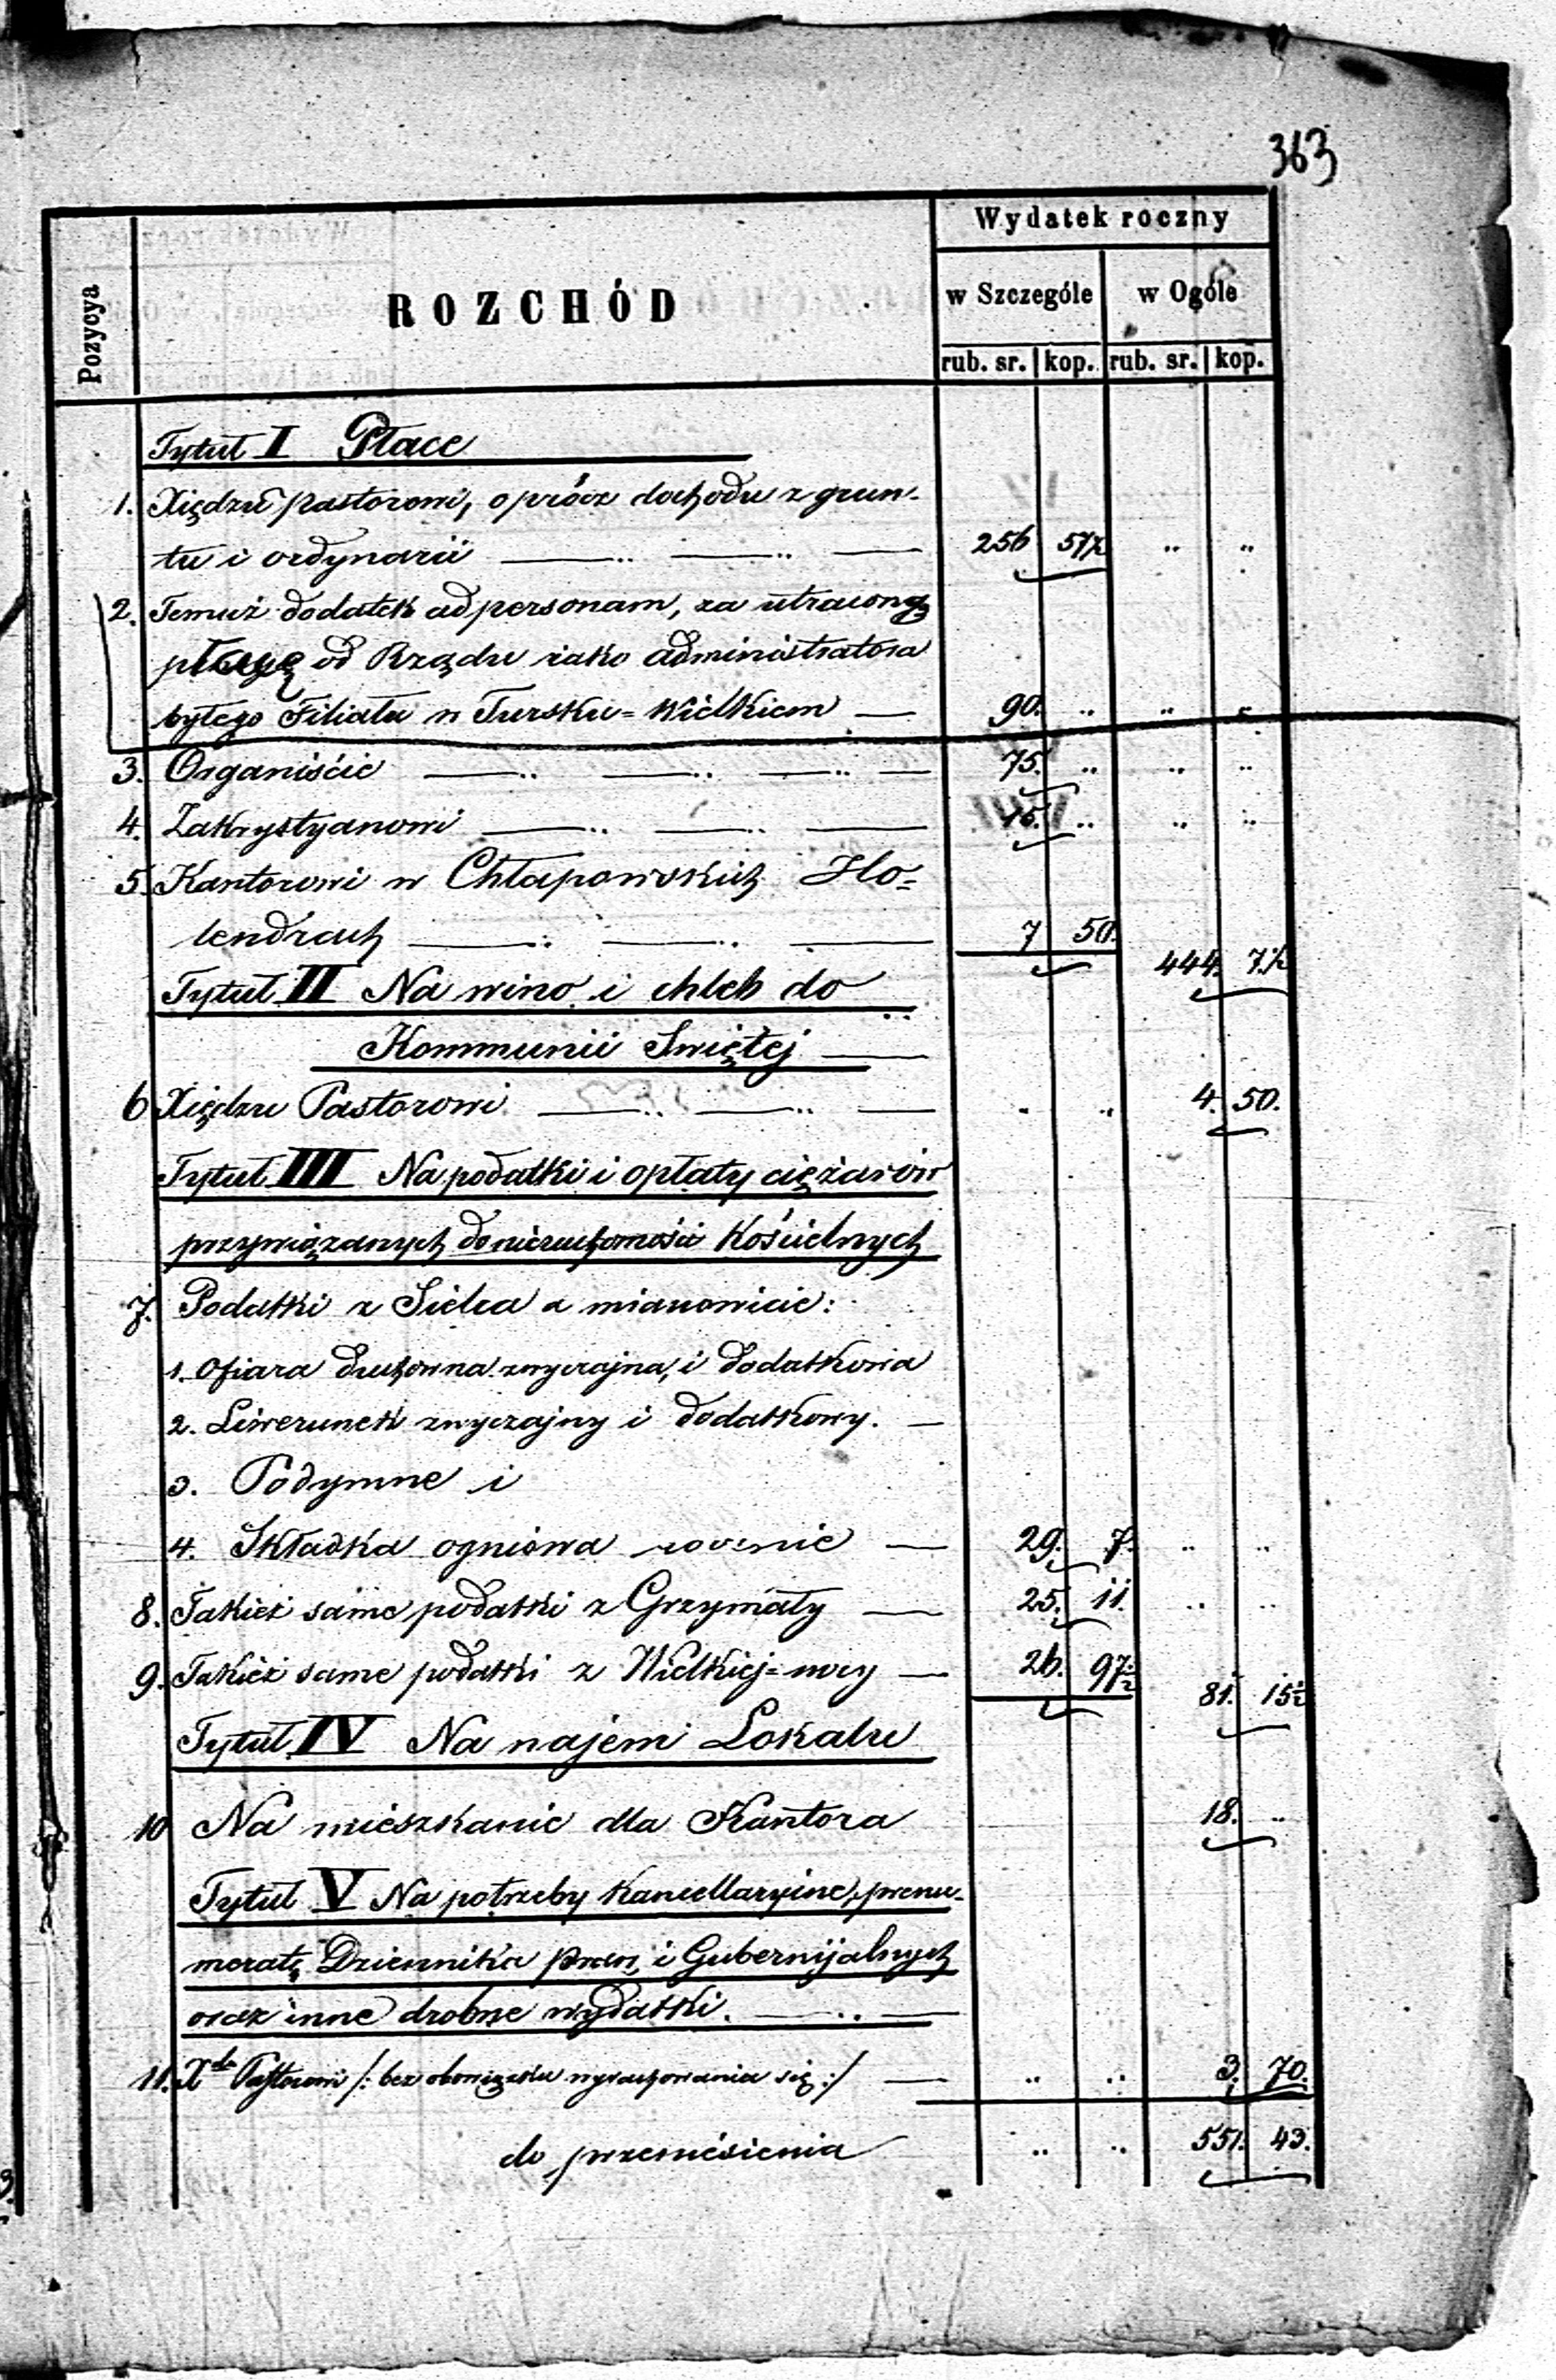 363
Wydatek roczny
Pozycya
ROZCHÓD
w Szczególe
w Ogóle
rub. sr. kop. rub. sr. kop.
Tytuł I Płace
1. Xiędzu Pastorowi, oprócz dochodu z grun-
tu i ordynarii 256 57½ " "
2. Temuż dodatek ad personam, za utraconą
płacę od Rządu iako administratora
byłego Filiału w Tursku=Wielkiem 90. " " "
3. Organiście 75. " " "
4. Zakrystyanowi 15. " " "
5. Kantorowi w Chłapowskich Ho=
lendrach 7 50. 444. 7½
Tytuł II Na wino i chleb do
Kommunii Świętej
6 Xiędzu Pastorowi " " 4. 50.
Tytuł III Na podatki i opłaty ciężarów
przywiązanych do nieruchomości Kościelnych
7. Podatki z Sielca a mianowicie:
1. Ofiara duchowna zwyczajna, i dodatkowa
2. Liwerunek zwyczajny i dodatkowy.
3. Podymne i
4. Składka ogniowa rocznie 29. 7. " "
8. Takież same podatki z Grzymały 25. 11. " "
9. Takież same podatki z Wielkiej=wsy 26. 97½ 81. 15½
Tytuł IV Na najem Lokalu
10 Na mieszkanie dla Kantora 18. "
Tytuł V Na potrzeby Kancellaryine, prenu-
meratę Dziennika Praw, i Gubernijalnych
oraz inne drobne wydatki.
11. Xdu Pastorowi /: bez obowiązku wyrachowania się :/ " " 3. 70.
do przeniesienia " " 551. 43.